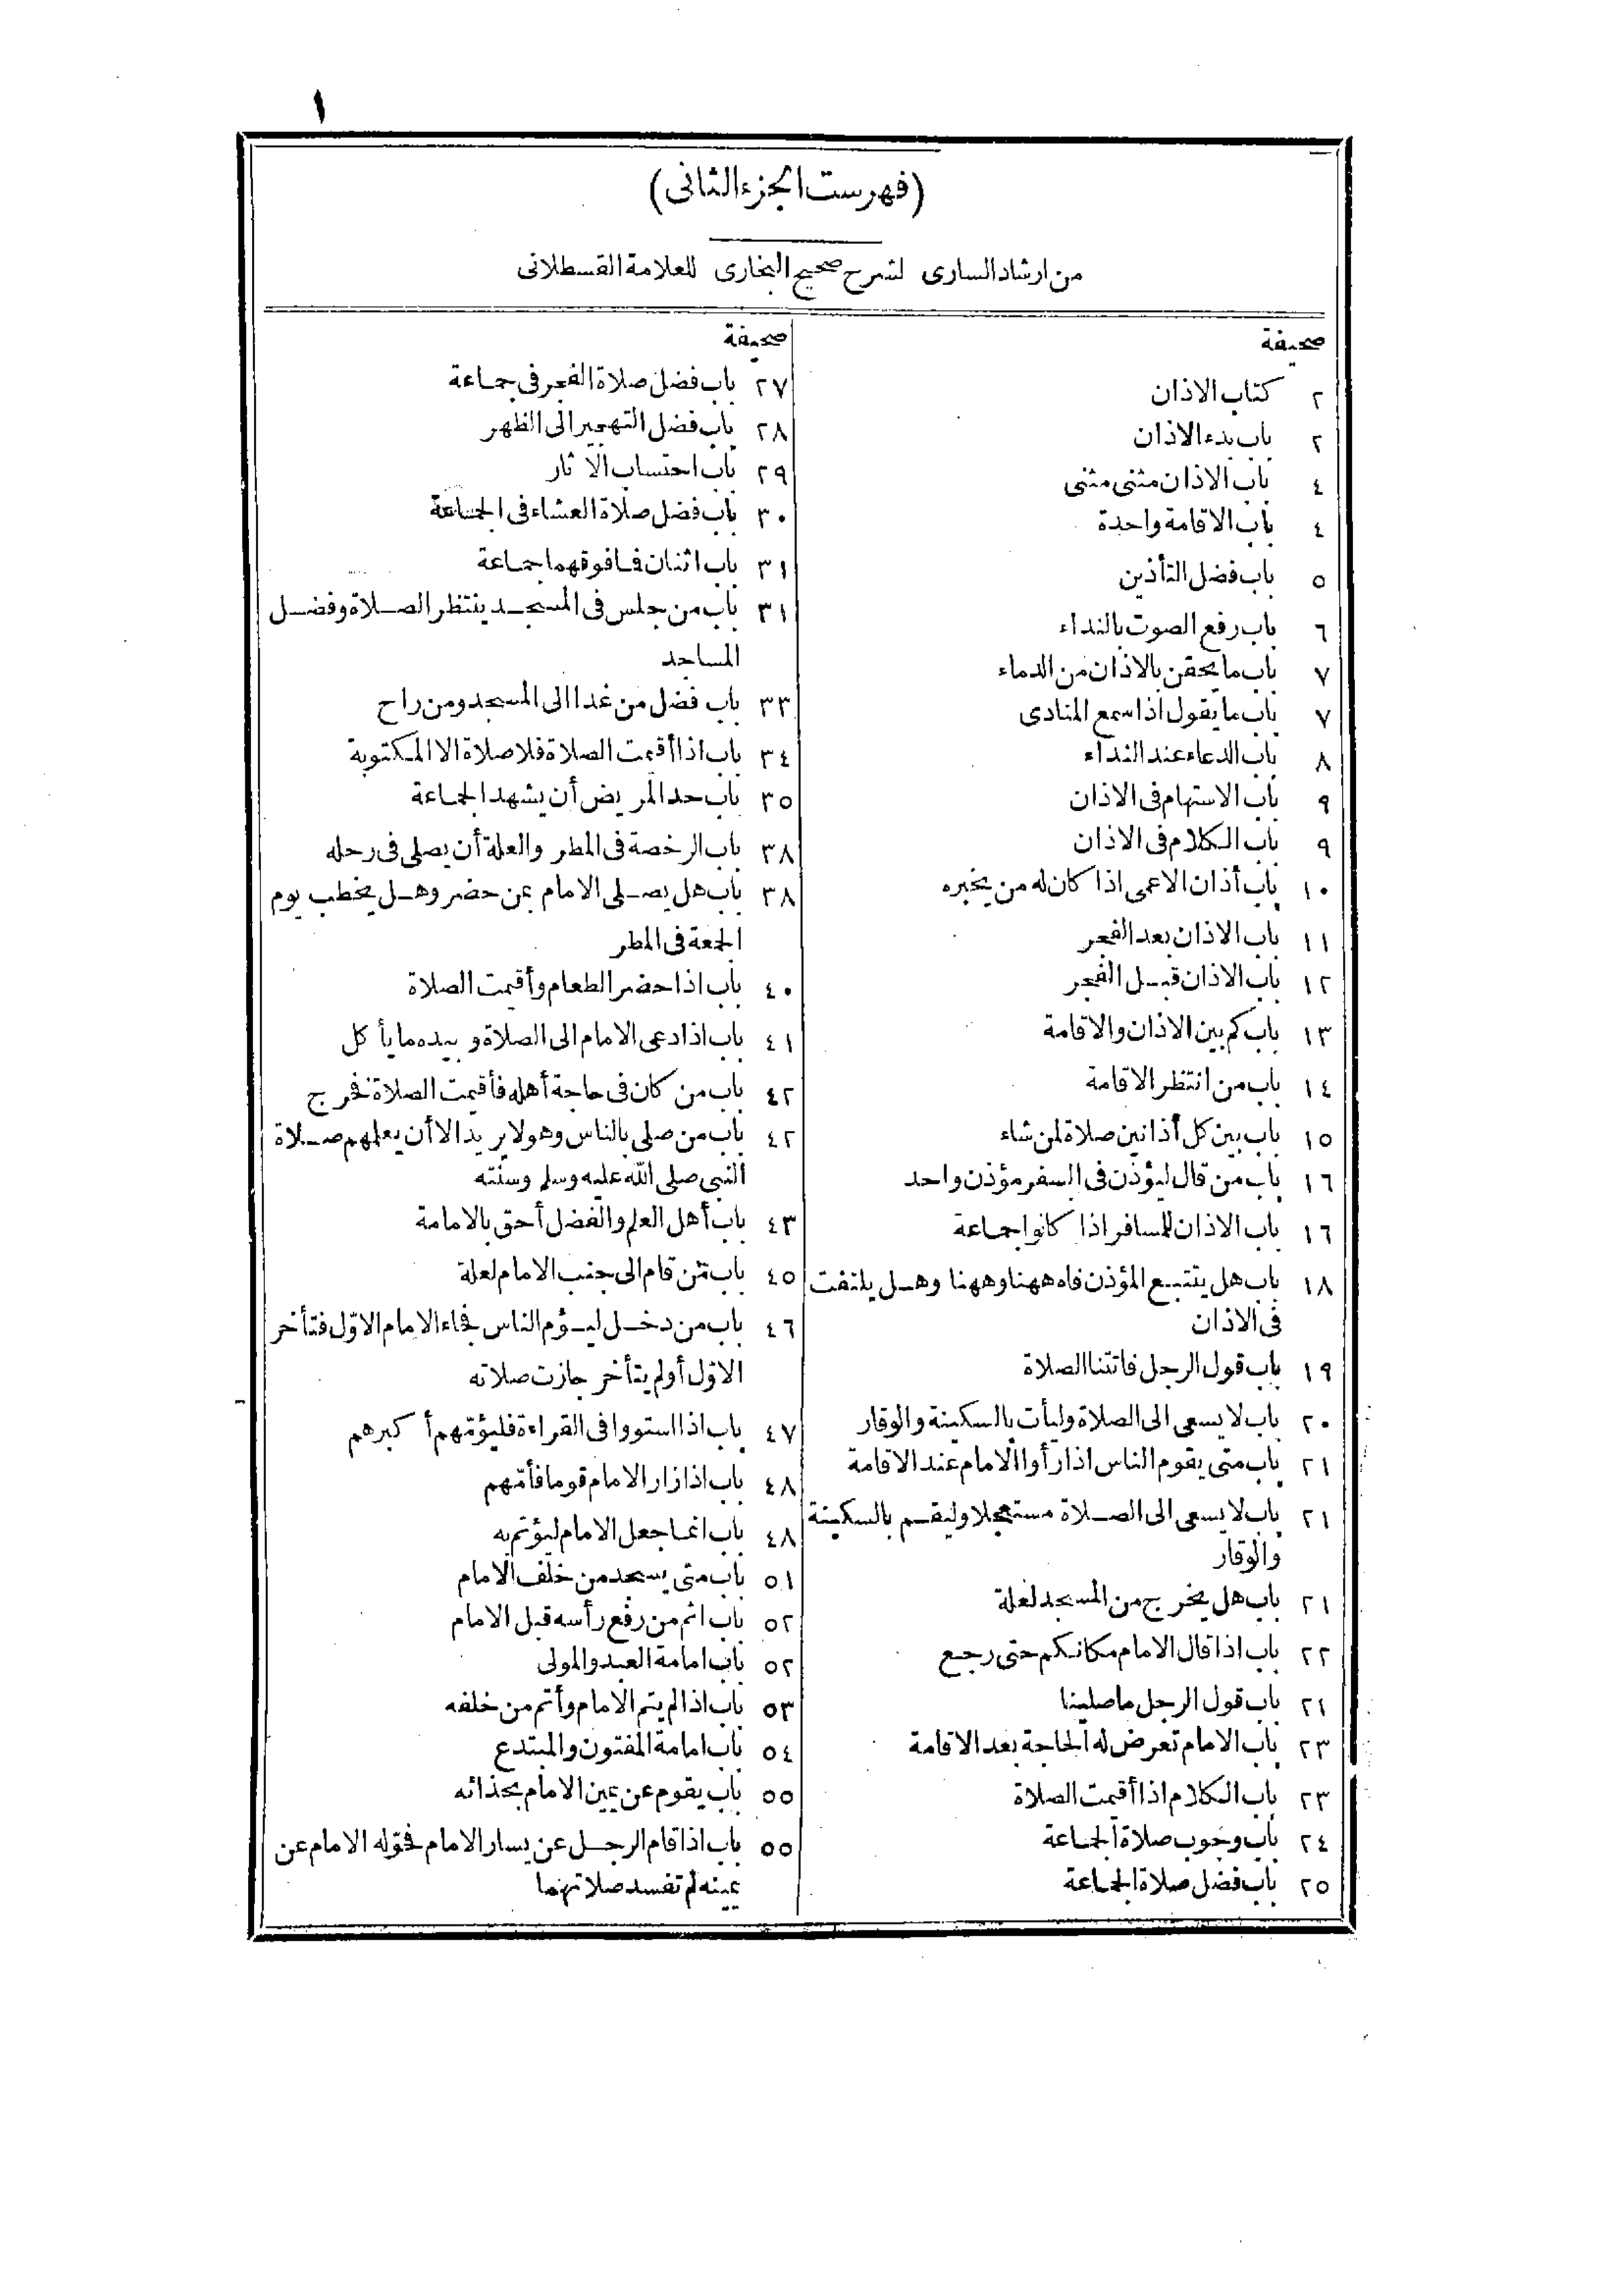 ١
(فهرست الجزء الثانى)
من ارشاد السارى لشرح صحيح البخارى للعلامة القسطلانى
صحيفة
٢ كتاب الاذان
٢ باب بدء الاذان
٤ باب الاذان مثنى مثنى
٤ باب الاقامة واحدة
٥ باب فضل التأذين
٦ باب رفع الصوت بالنداء
٧ باب ما يحقن بالاذان من الدماء
٧ باب ما يقول اذا سمع المنادى
٨ باب الدعاء عند النداء
٩ باب الاستهام فى الاذان
٩ باب الكلام فى الاذان
١٠ باب أذان الاعمى اذا كان له من يخبره
١١ باب الاذان بعد الفجر
١٢ باب الاذان قبل الفجر
١٣ باب كم بين الاذان والاقامة
١٤ باب من انتظر الاقامة
١٥ باب بين كل أذانين صلاة لمن شاء
١٦ باب من قال ليؤذن فى السفر مؤذن واحد
١٦ باب الاذان للمسافر اذا كانوا جماعة
١٨ باب هل يتتبع المؤذن فاه ههنا وههنا وهل يلتفت
فى الاذان
١٩ باب قول الرجل فاتتنا الصلاة
٢٠ باب لا يسعى الى الصلاة وليأت بالسكينة والوقار
٢١ باب متى يقوم الناس اذا رأوا الامام عند الاقامة
٢١ باب لا يسعى الى الصلاة مستعجلا وليقم بالسكينة
والوقار
٢١ باب هل يخرج من المسجد لعلة
٢٢ باب اذا قال الامام مكانكم حتى رجع
٢١ باب قول الرجل ما صلينا
٢٣ باب الامام تعرض له الحاجة بعد الاقامة
٢٣ باب الكلام اذا أقيمت الصلاة
٢٤ باب وجوب صلاة الجماعة
٢٥ باب فضل صلاة الجماعة
صحيفة
٢٧ باب فضل صلاة الفجر فى جماعة
٢٨ باب فضل التهجير الى الظهر
٢٩ باب احتساب الآثار
٣٠ باب فضل صلاة العشاء فى الجماعة
٣١ باب اثنان فما فوقهما جماعة
٣١ باب من جلس فى المسجد ينتظر الصلاة وفضل
المساجد
٣٣ باب فضل من غدا الى المسجد ومن راح
٣٤ باب اذا أقيمت الصلاة فلا صلاة الا المكتوبة
٣٥ باب حد المريض أن يشهد الجماعة
٣٨ باب الرخصة فى المطر والعلة أن يصلى فى رحله
٣٨ باب هل يصلى الامام بمن حضر وهل يخطب يوم
الجمعة فى المطر
٤٠ باب اذا حضر الطعام وأقيمت الصلاة
٤١ باب اذا دعى الامام الى الصلاة وبيده ما يأكل
٤٢ باب من كان فى حاجة أهله فأقيمت الصلاة فخرج
٤٢ باب من صلى بالناس وهو لا يريد الا أن يعلمهم صلاة
النبى صلى الله عليه وسلم وسنته
٤٣ باب أهل العلم والفضل أحق بالامامة
٤٥ باب من قام الى جنب الامام لعلة
٤٦ باب من دخل ليؤم الناس فجاء الامام الاوّل فتأخر
الاوّل أولم يتأخر جازت صلاته
٤٧ باب اذا استووا فى القراءة فليؤمّهم أكبرهم
٤٨ باب اذا زار الامام قوما فأمّهم
٤٨ باب انما جعل الامام ليؤتم به
٥١ باب متى يسجد من خلف الامام
٥٢ باب اثم من رفع رأسه قبل الامام
٥٢ باب امامة العبد والمولى
٥٣ باب اذا لم يتم الامام وأتم من خلفه
٥٤ باب امامة المفتون والمبتدع
٥٥ باب يقوم عن يمين الامام بحذائه
٥٥ باب اذا قام الرجل عن يسار الامام فحوّله الامام عن
يمينه لم تفسد صلاتهما